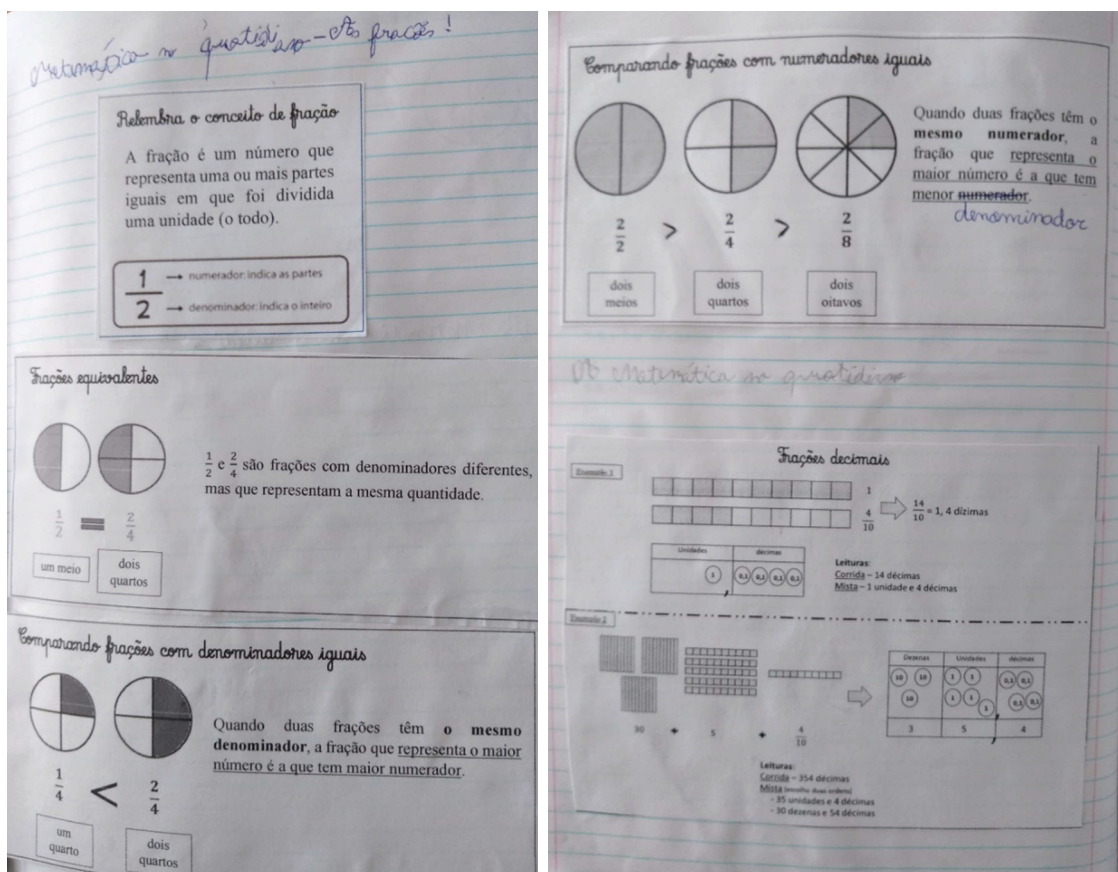 Matemática no quotidiano - As frações!
Relembra o conceito de fração
A fração é um número que
representa uma ou mais partes
iguais em que foi dividida
uma unidade (o todo).
1 → numerador: indica as partes
2 → denominador: indica o inteiro
Frações equivalentes
1/2 e 2/4 são frações com denominadores diferentes,
mas que representam a mesma quantidade.
1/2 = 2/4
um meio
dois
quartos
Comparando frações com denominadores iguais
Quando duas frações têm o mesmo
denominador, a fração que representa o maior
número é a que tem maior numerador.
1/4 < 2/4
um
quarto
dois
quartos
Comparando frações com numeradores iguais
Quando duas frações têm o
mesmo numerador, a
fração que representa o
maior número é a que tem
menor numerador.
denominador
2/2 > 2/4 > 2/8
dois
meios
dois
quartos
dois
oitavos
Matemática no quotidiano
Frações decimais
Exemplo 1
1
4/10
14/10 = 1, 4 dízimas
Unidades décimas
1 0,1 0,1 0,1 0,1
,
Leituras:
Corrida – 14 décimas
Mista – 1 unidade e 4 décimas
Exemplo 2
Dezenas Unidades décimas
10 10 1 1 0,1 0,1
10 1 1 1 0,1 0,1
3 5 , 4
30 + 5 + 4/10
Leituras:
Corrida – 354 décimas
Mista (escolho duas ordens)
- 35 unidades e 4 décimas
- 30 dezenas e 54 décimas